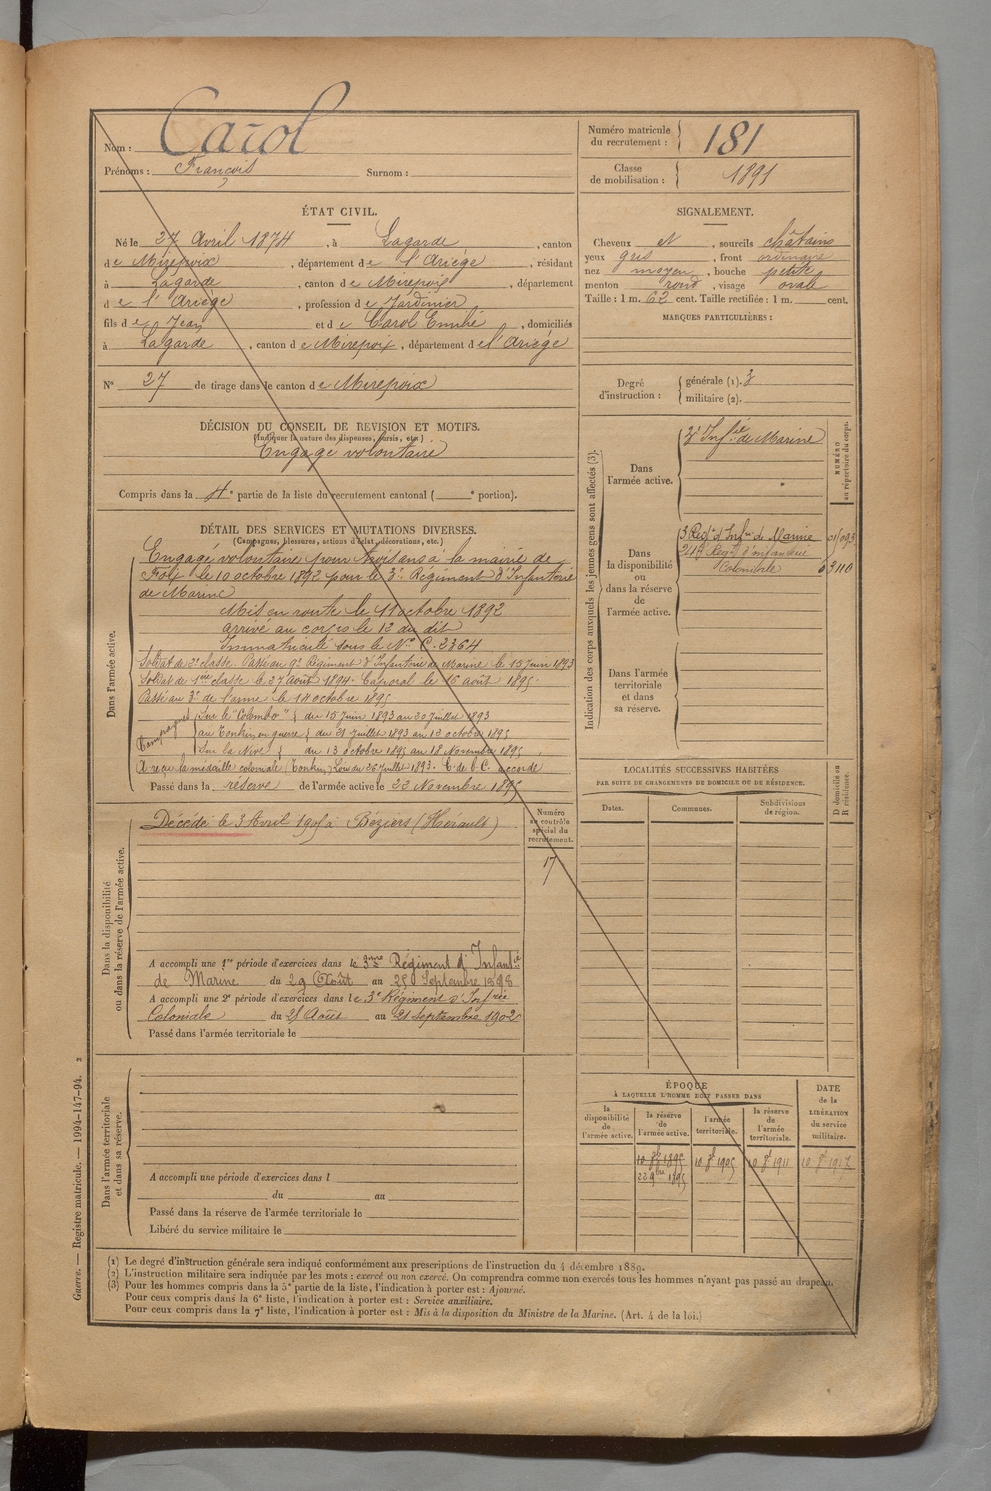 Nom : Carol
Prénoms : François Surnom :
Numéro matricule du recrutement : 181
Classe de mobilisation : 1891
ÉTAT CIVIL.
Né le 27 Avril 1874, à Lagarde, canton
de Mirepoix, département de l'Ariège, résidant
à Lagarde, canton de Mirepoix, département
de l'Ariège, profession de Jardinier,
fils de Jean et de Carol Emilie, domiciliés
à Lagarde, canton de Mirepoix, département de l'Ariège
N° 27 de tirage dans le canton de Mirepoix
SIGNALEMENT.
Cheveux et, sourcils châtains
yeux gris, front ordinaire
nez moyen, bouche petite
menton rond, visage ovale
Taille : 1 m. 62 cent. Taille rectifiée : 1 m. cent.
MARQUES PARTICULIÈRES :
Degré d'instruction : générale (1). 3
militaire (2).
DÉCISION DU CONSEIL DE REVISION ET MOTIFS.
(Indiquer la nature des dispenses, sursis, etc.)
Engagé volontaire
Compris dans la 4e partie de la liste du recrutement cantonal ( e portion).
DÉTAIL DES SERVICES ET MUTATIONS DIVERSES.
(Campagnes, blessures, actions d'éclat, décorations, etc.)
Dans l'armée active.
Engagé volontaire pour trois ans à la mairie de
Foix le 10 octobre 1892 pour le 3e Régiment d'Infanterie
de Marine
Mis en route le 11 octobre 1892
arrivé au corps le 12 du dit
Immatriculé sous le N° C. 2364
Soldat de 2e classe. Passé au 9e Régiment d'Infanterie de Marine le 15 juin 1893
Soldat de 1ère classe le 27 août 1894. Caporal le 16 août 1895.
Passé au 3e de l'arme le 14 octobre 1895
Campagnes Sur le "Colombo" du 15 juin 1893 au 30 juillet 1893
au Tonkin, en guerre du 31 juillet 1893 au 12 octobre 1895
Sur la Nive du 13 octobre 1895 au 18 Novembre 1895
A reçu la médaille coloniale (Tonkin) Loi du 26 juillet 1893. C. de b. C. accordé
Passé dans la réserve de l'armée active le 22 Novembre 1895
Dans la disponibilité ou dans la réserve de l'armée active.
Décédé le 3 Avril 1905 à Béziers (Hérault)
Numéro au contrôle spécial du recrutement.
17
A accompli une 1re période d'exercices dans le 3ème Régiment d'Infantie
de Marine du 29 Août au 25 Septembre 1898
A accompli une 2e période d'exercices dans le 3e Régiment d'Infrie
Coloniale du 25 Août au 21 septembre 1902
Passé dans l'armée territoriale le
Dans l'armée territoriale et dans sa réserve.
A accompli une période d'exercices dans l
du au
Passé dans la réserve de l'armée territoriale le
Libéré du service militaire le
Indication des corps auxquels les jeunes gens sont affectés (3).
NUMÉRO au répertoire du corps.
Dans l'armée active.
3e Infrie de Marine
Dans la disponibilité ou dans la réserve de l'armée active.
3 Regt d'Infrie de Marine
21e Regt d'infanterie
Coloniale 03110
Dans l'armée territoriale et dans sa réserve.
LOCALITÉS SUCCESSIVES HABITÉES
PAR SUITE DE CHANGEMENTS DE DOMICILE OU DE RÉSIDENCE.
Dates. Communes. Subdivisions de région. D domicile ou R résidence.
ÉPOQUE
À LAQUELLE L'HOMME DOIT PASSER DANS
DATE de la LIBÉRATION du service militaire.
la disponibilité de l'armée active.
la réserve de l'armée active.
l'armée territoriale.
la réserve de l'armée territoriale.
10 8bre 1895 10 8bre 1905 10 8bre 1911 10 8bre 1917
22 9bre 1895
(1) Le degré d'instruction générale sera indiqué conformément aux prescriptions de l'instruction du 4 décembre 1889.
(2) L'instruction militaire sera indiquée par les mots : exercé ou non exercé. On comprendra comme non exercés tous les hommes n'ayant pas passé au drapeau.
(3) Pour les hommes compris dans la 5e partie de la liste, l'indication à porter est : Ajourné.
Pour ceux compris dans la 6e liste, l'indication à porter est : Service auxiliaire.
Pour ceux compris dans la 7e liste, l'indication à porter est : Mis à la disposition du Ministre de la Marine. (Art. 4 de la loi.)
Guerre. — Registre matricule. — 1994-147-94. 2